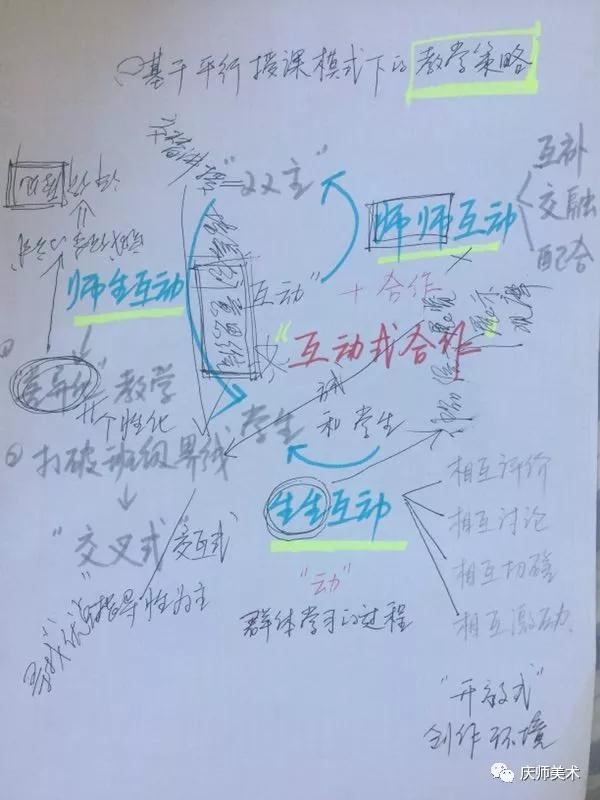 基于平行授课模式下的教学策略
"双主"
互补
交融
配合
师师互动
师生互动
互动"
+合作
"互动式合作"
教学
个性化
学生
和学生
② 打破班级界线
生生互动
"交叉式"
交互式
"动"
指导性为主
群体学习的过程
相互评价
相互讨论
相互切磋
相互激励
"开放式"
创作环境
庆师美术